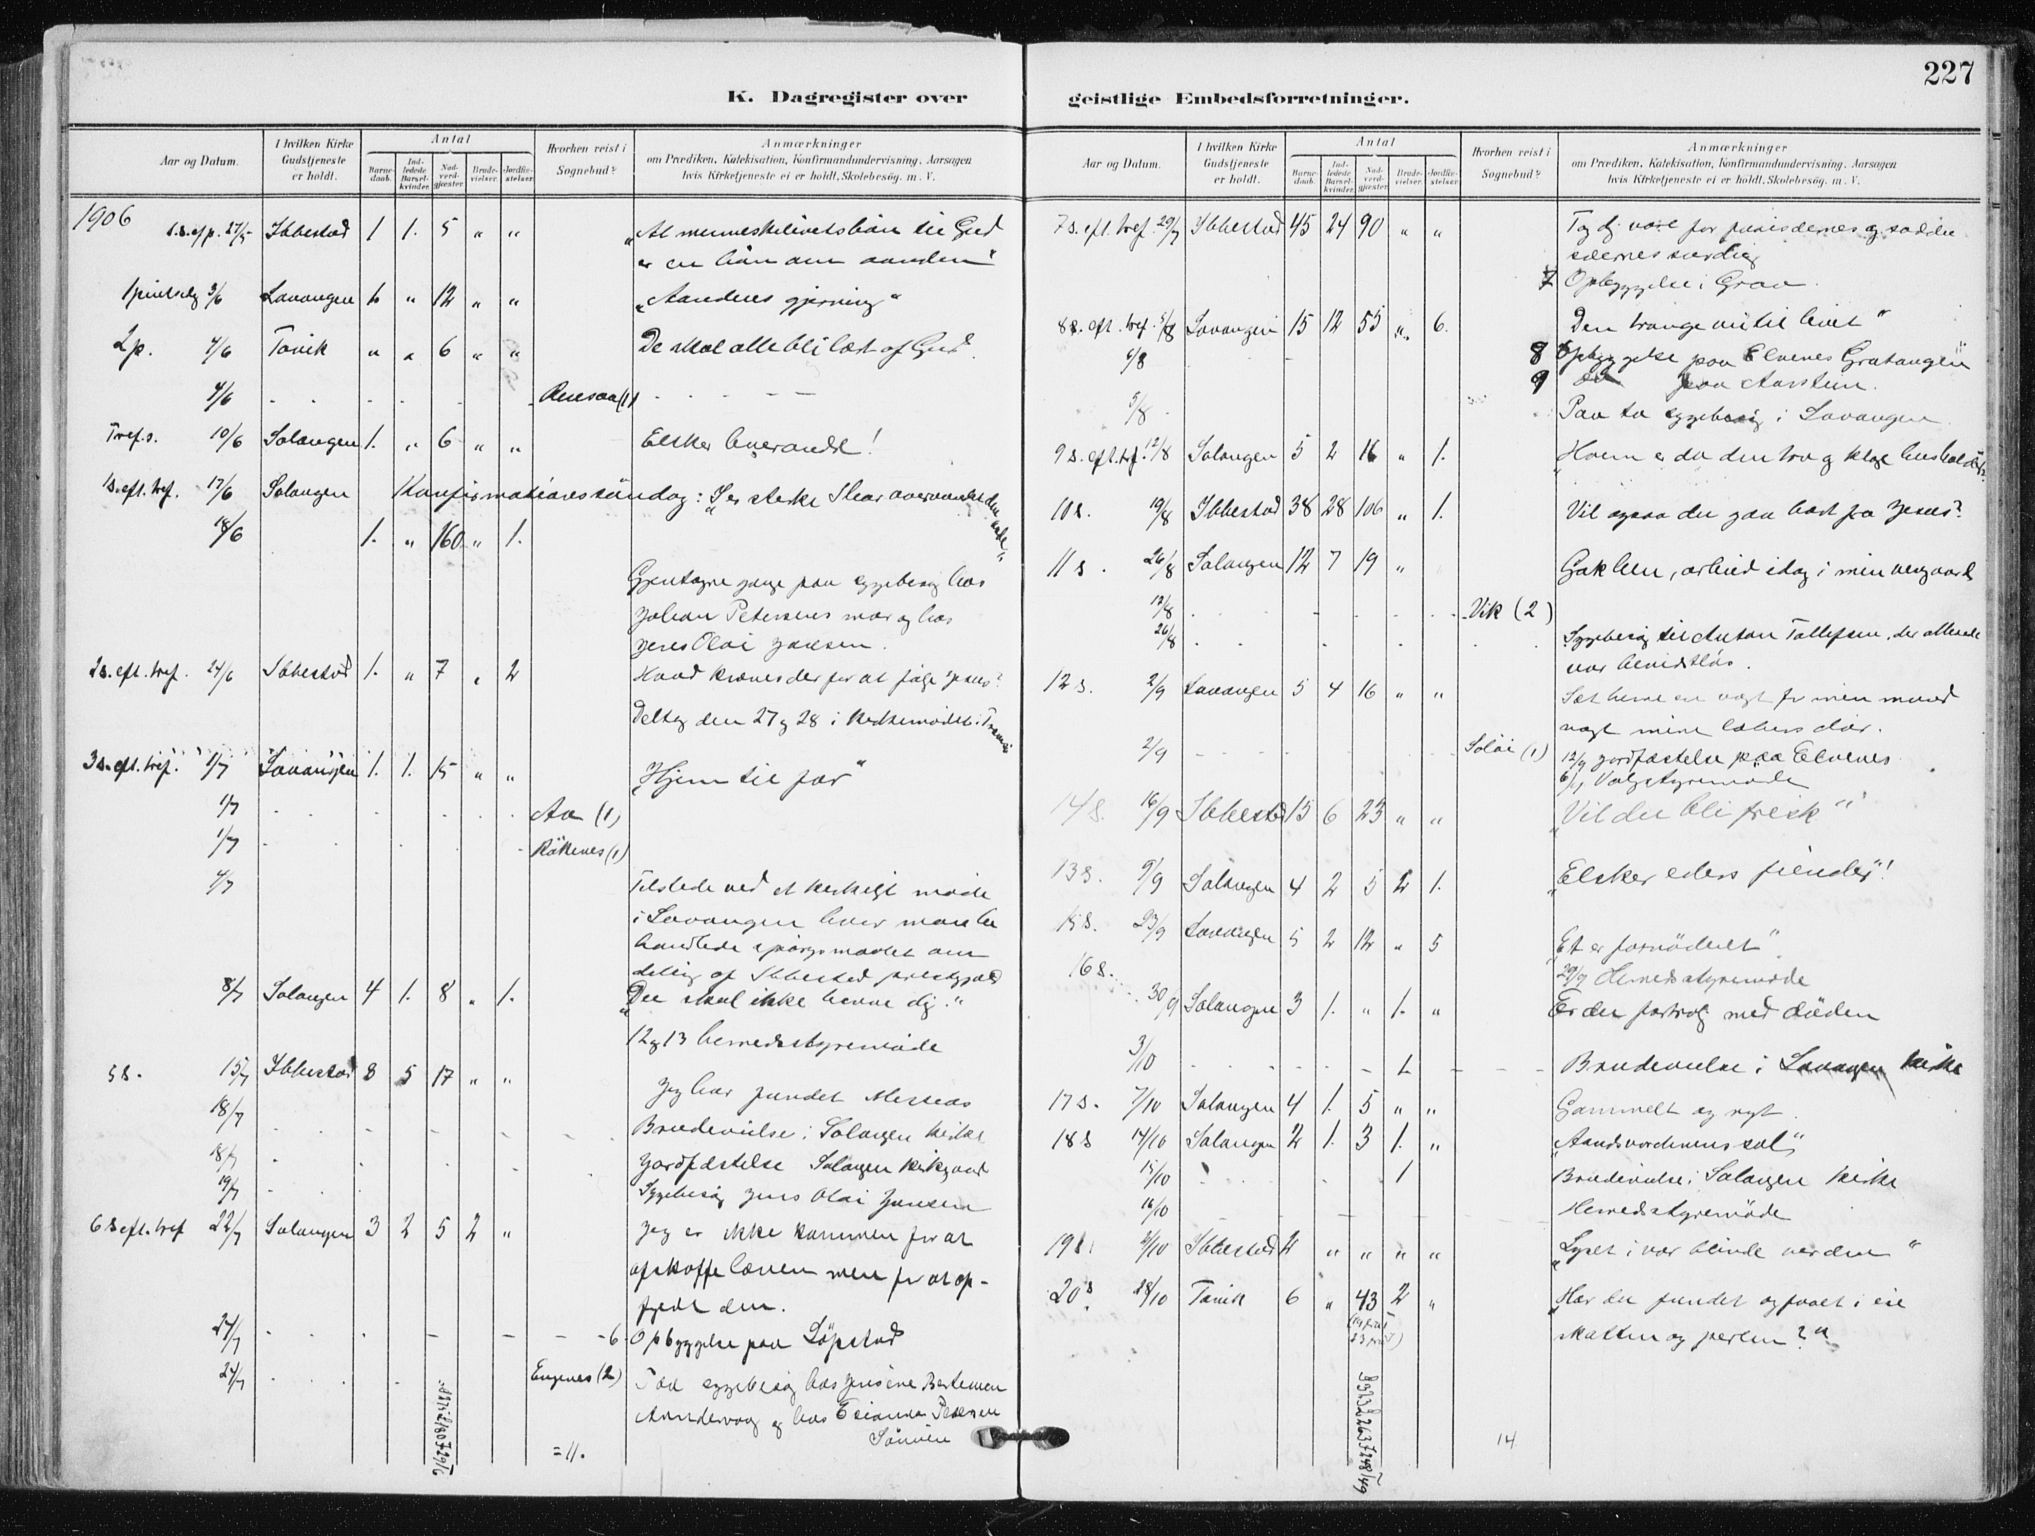 K. Dagregister over
Aar og Datum.
I hvilken Kirke Gudstjeneste er holdt.
Antal
Barne-daab.
Ind-ledede Barsel-kvinder.
Nad-verd-gjæster
Brude-vielser.
Jordfæ-stelser.
Hvorhen reist i Sognebud?
Anmærkninger
om Prædiken, Katekisation, Konfirmandundervisning, Aarsagen
hvis Kirketjeneste ei er holdt, Skolebesög. m. V.
1906
27/5 Ibbestad 1 1. 5 " " "At menneskelivets bön til Gud
er en bön om aanden"
3/6 Lavangen " 12 " " "Aandens gjerning"
2 p. 4/6 Tovik " " 6 " " De skal alle bli lært af Gud.
4/6
Tref.s. 10/6 Salangen 1. " 6 " " Elsker hverandre!
1s. eft. tref. 17/6 Salangen Konfirmationssöndag:
18/6 1. " 160 " 1.
Gjentagne gange paa sygebesög hos
Johan Petersens mor og hos
Jens Olai Jensen.
2s. eft. tref. 24/6 Ibbestad 1. " 7 " 2 Hvad kræves der for at fölge Jesus?
Deltog den 27 og 28 i kirkemödet i Tromsö
3s. eft. tref. 1/7 Lavangen 1. 1. 15 " " "Hjem til far"
1/7 Aa (1)
1/7 Rökenes (1)
4/7 Tilstede ved et kirkeligt möde
i Lavangen hvor man be
handlede spörgsmaalet om
deling af Ibbestad prestegjeld
8/7 Salangen 4 1. 8 " 1. "Du skal ikke hevne dig."
12 og 13 herredsstyremöde
5 s. 15/7 Ibbestad 8 5 17 " " Jeg har fundet Messias
18/7 Brudevielse i Salangen kirke
18/7 Jordfæstelse Salangen kirkgaard
19/7 Sygebesög Jens Olai Jensen
6 s eft. tref 22/7 Salangen 3 2 5 2 " Jeg er ikke kommen for at
afskaffe loven men for at op-
fylde den.
24/7 6 Opbyggelse paa Löpstad
24/7 Engenes (2) Paa sygebesög hos
og hos
= 11.
geistlige Embedsforretninger.
227
Aar og Datum.
I hvilken Kirke Gudstjeneste er holdt.
Antal
Barne-daab.
Ind-ledede Barsel-kvinder.
Nad-verd-gjæster
Brude-vielser.
Jordfæ-stelser.
Hvorhen reist i Sognebud?
Anmærkninger
om Prædiken, Katekisation, Konfirmandundervisning, Aarsagen
hvis Kirketjeneste ei er holdt, Skolebesög. m. V.
7 s. eft. tref. 29/7 Ibbestad 45 24 90 " " Tag dj vare for farisæernes og saddu
sæernes surdeig
7 Opbyggelse i Grav.
8 s. eft. tref. 5/8 Lavangen 15 12 55 " 6. Den trange vei til livet"
6/8 8 Opbyggelse paa Elvenes Gratangen
9 paa Aarstein.
5/8 Paa to sygebesög i Lavangen.
9 s. eft. tref. 12/8 Salangen 5 2 16 " 1. "Hvem er da den tro og kloge husholder"?
10 s. 19/8 Ibbestad 38 28 106 " 1. Vil ogsaa du gaa bort fra Jesus?
11 s. 26/8 Salangen 12 7 19 " Gak hen, arbeid idag i min vingaard
12/8 Vik (2)
26/8 Sygebesög til Anton Tollefsen, der allerede
var bevidstlös.
12 s. 2/9 Lavangen 5 4 16 " " Sæt herre en vagt for min mund
vogt mine læbers dör.
2/9 Solöi (1) 12/9 jordfæstelse paa Elvenes
6/9 Valgstyremöde
14 s. 16/9 Ibbestad 15 6 23 " " "Vil du bli frisk"
13 s. 9/9 Salangen 4 2 5 2 1. "Elsker eders fiender"!
15 s. 23/9 Lavangen 5 2 12 " 5 "Et er fornödent"
29/9 Herredsstyremöde
16 s. 30/9 Salangen 3 1. " 1. " Er du fortrolig med döden
3/10 1 Brudevielse i Lavangen kirke
17 s. 7/10 Salangen 4 1. 5 " " Gammelt og nyt.
18 s 14/10 Salangen 2 1. 3 1. "
15/10 1 Brudevielse i Salangen kirke
16/10 Herredsstyremöde
19 s. 21/10 Ibbestad 2 " " " " "Lyset i vor blinde verden"
20 s. 28/10 Tovik 6 " 43 2 " "Har du fundet og faaet i eie
skatten og perlen?"
14